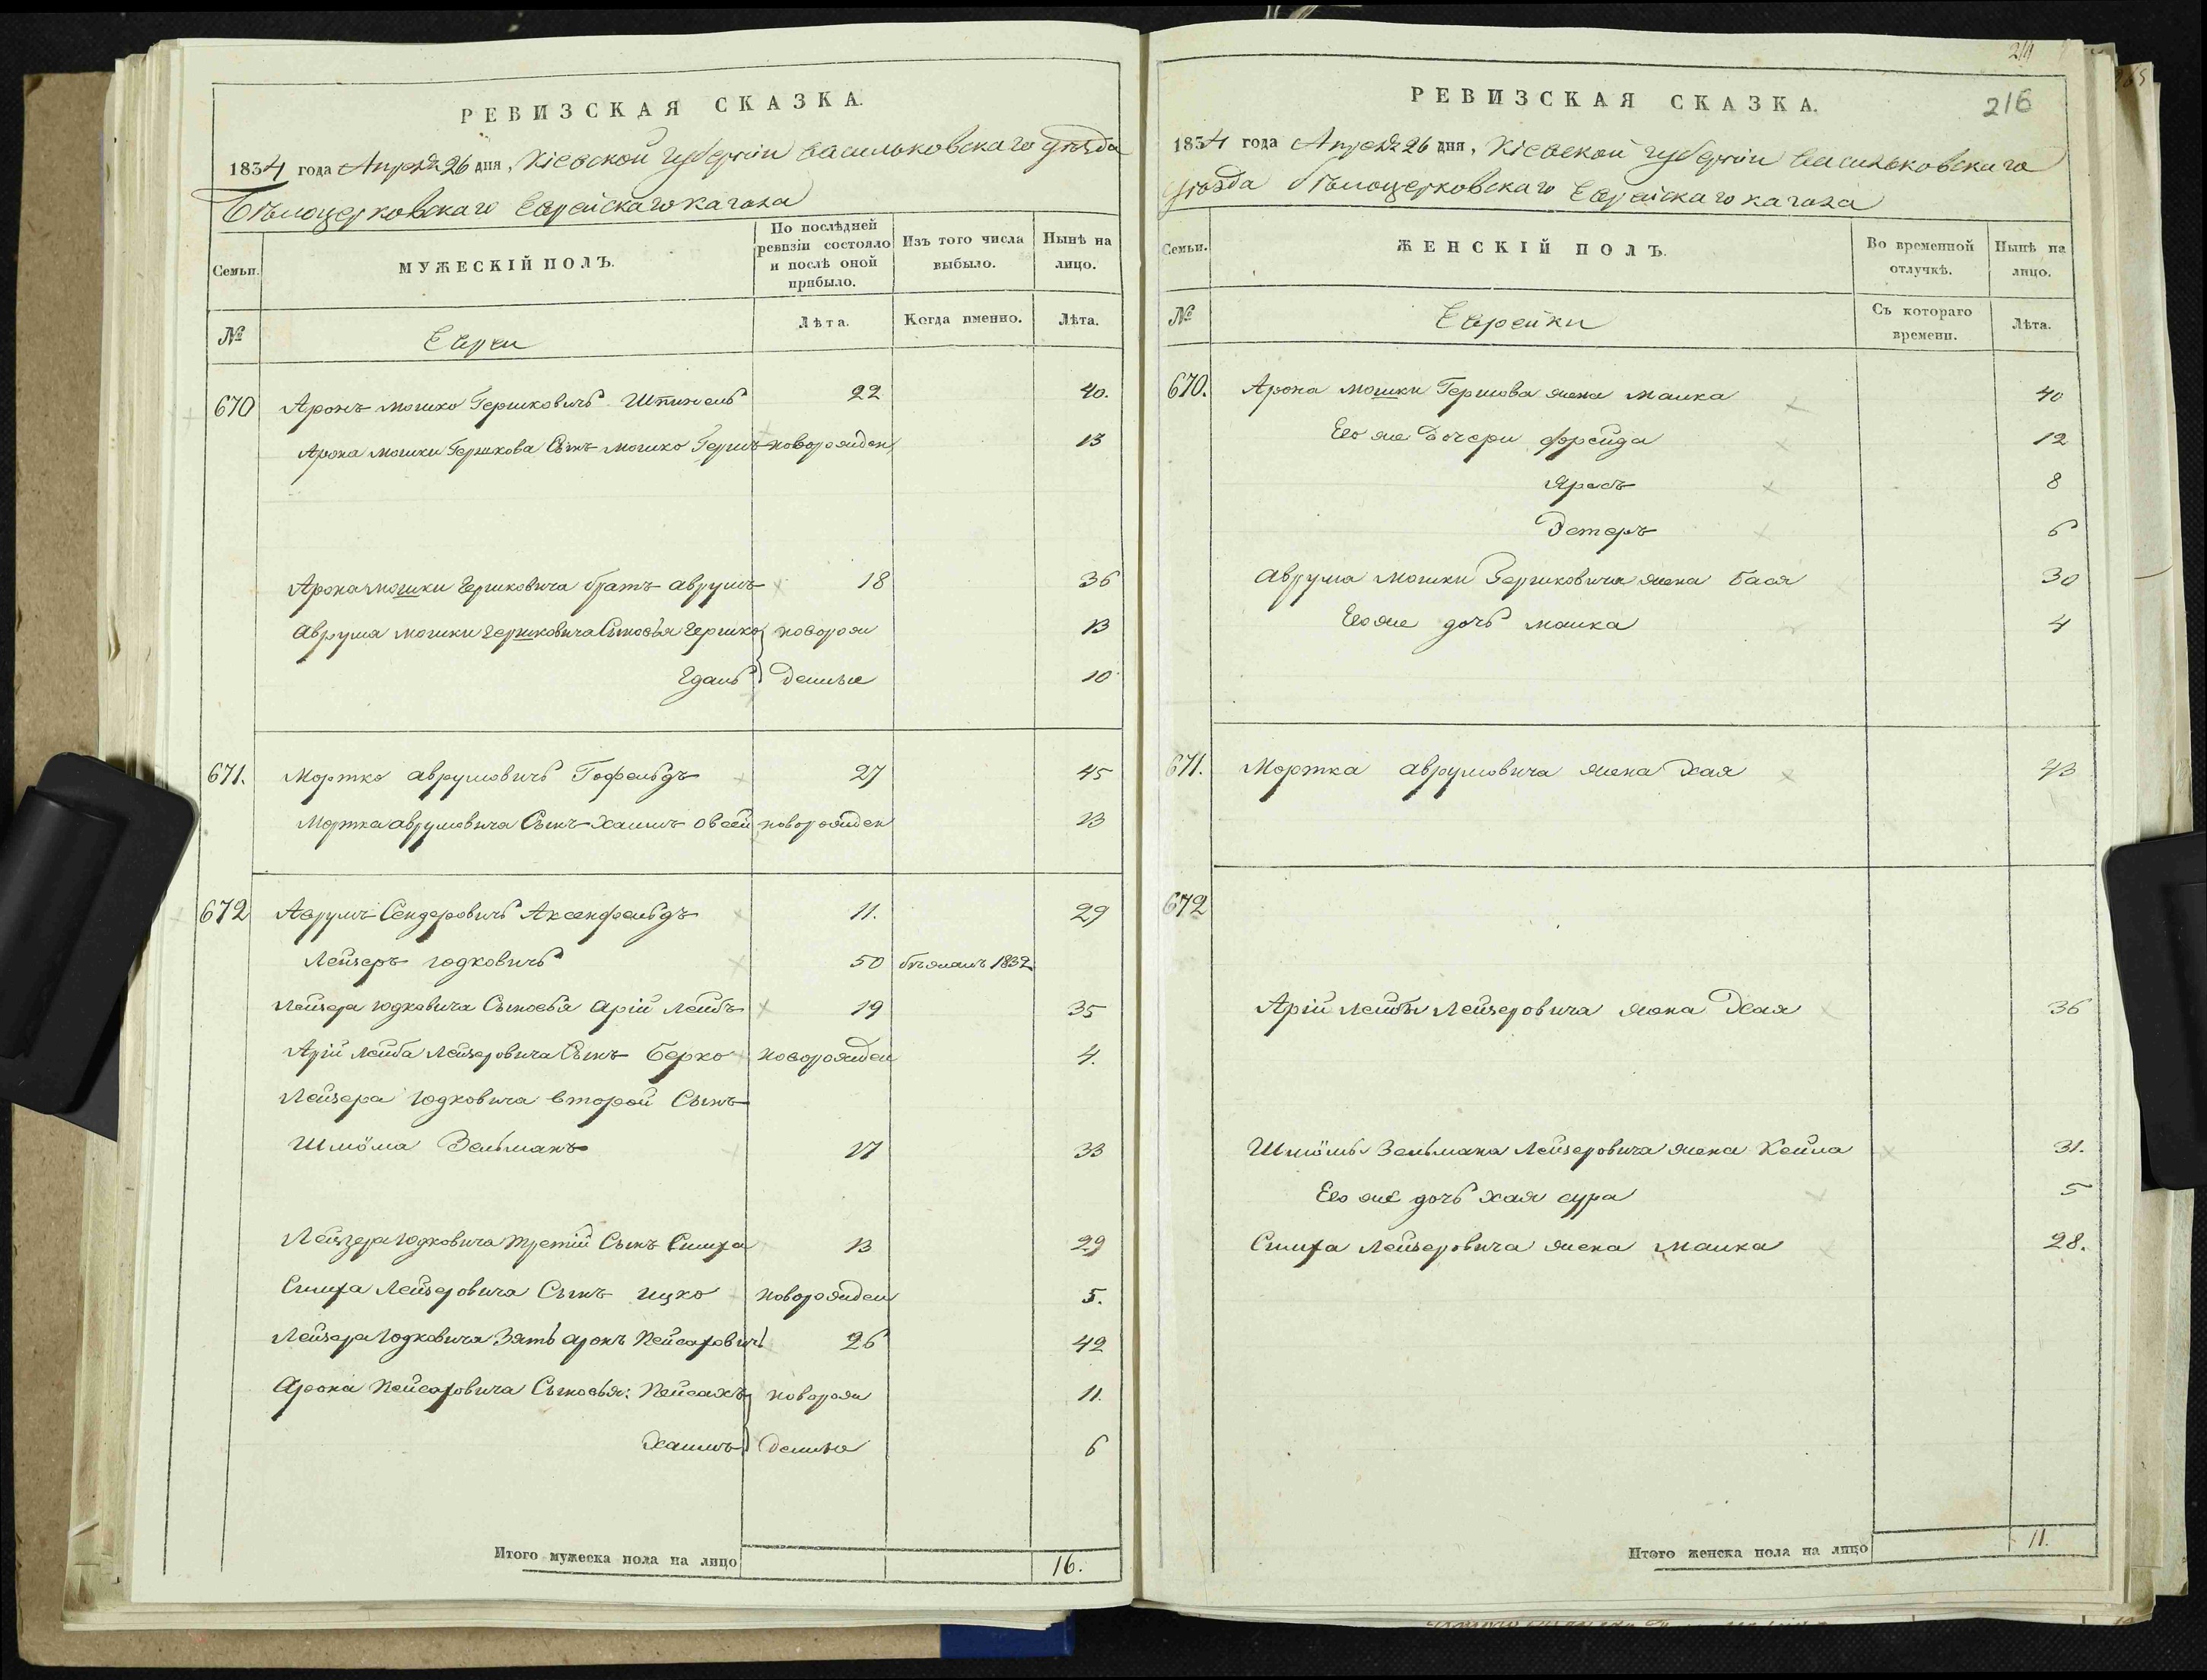 РЕВИЗСКАЯ СКАЗКА.
1834 года Апреля 26 дня, Кіевской Губерніи Васильковскаго уѣзда
Бѣлоцерковскаго Еврейскаго кагала
Семьи.
МУЖЕСКІЙ ПОЛЪ.
По послѣдней ревизіи состояло и послѣ оной прибыло.
Изъ того числа выбыло.
Нынѣ на лицо.
№
Евреи
Лѣта.
Когда именно.
Лѣта.
670 Аронъ мошко Гершковичъ Шпигель 22 40.
Арона мошки Гершкова Сынъ мошко Гершъ новорожден 13
Арона мошки Гершковича братъ аврумъ 18 36
Аврума мошки Гершковича Сыновья Гершко новорож 13
Гдаль денные 10
671. Мортко аврумовичъ Гофельдъ 27 45
Мортка аврумовича Сынъ Хаимъ овсей новорожден 13
672 Аврумъ Сендеровичъ Аксенфельдъ 11. 29
Лейзеръ юдковичъ 50 бѣжалъ 1832
Лейзера юдковича Сыновья Арій Лейбъ 19 35
Арій лейба Лейзеровича Сынъ Берко новорожден 4.
Лейзера юдковича второй Сынъ
Шлёма Зельманъ 17 33
Лейзера юдковича третій Сынъ Симха 13 29
Симха Лейзеровича Сынъ ицко новорожден 5.
Лейзера юдковича Зять аронъ Пейсаховичъ 26 42
Арона Пейсаховича Сыновья: Пейсахъ новорож 11.
Хаимъ денные 6
Итого мужеска пола на лицо 16.
216
РЕВИЗСКАЯ СКАЗКА.
1834 года Апреля 26 дня, Кіевской Губерніи Васильковскаго
уѣзда Бѣлоцерковскаго Еврейскаго кагала
Семьи.
ЖЕНСКІЙ ПОЛЪ.
Во временной отлучкѣ.
Нынѣ на лицо.
№
Еврейки
Съ котораго времени.
Лѣта.
670. Арона мошки Гершова жена малка 40
Его же дочери фрейда 12
8
Эстеръ 6
Аврума мошки Гершковича жена Бася 30
Его же дочь малка 4
671. Мортка аврумовича жена Хая 43
672
Арій лейбы Лейзеровича жена Хая 36
Шлёмы Зельмана Лейзеровича жена Кейла 31.
Его же дочь хая сура 5
Симха Лейзеровича жена малка 28.
Итого женска пола на лицо 11.